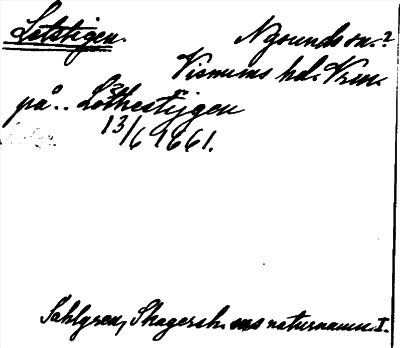 Lötstigen. Nysunds sn.?
Visnums hd. Vrml.
på.. Löthestijgen
13/6 1661.
Sahlgren, Skagersh. ens naturnamn I.